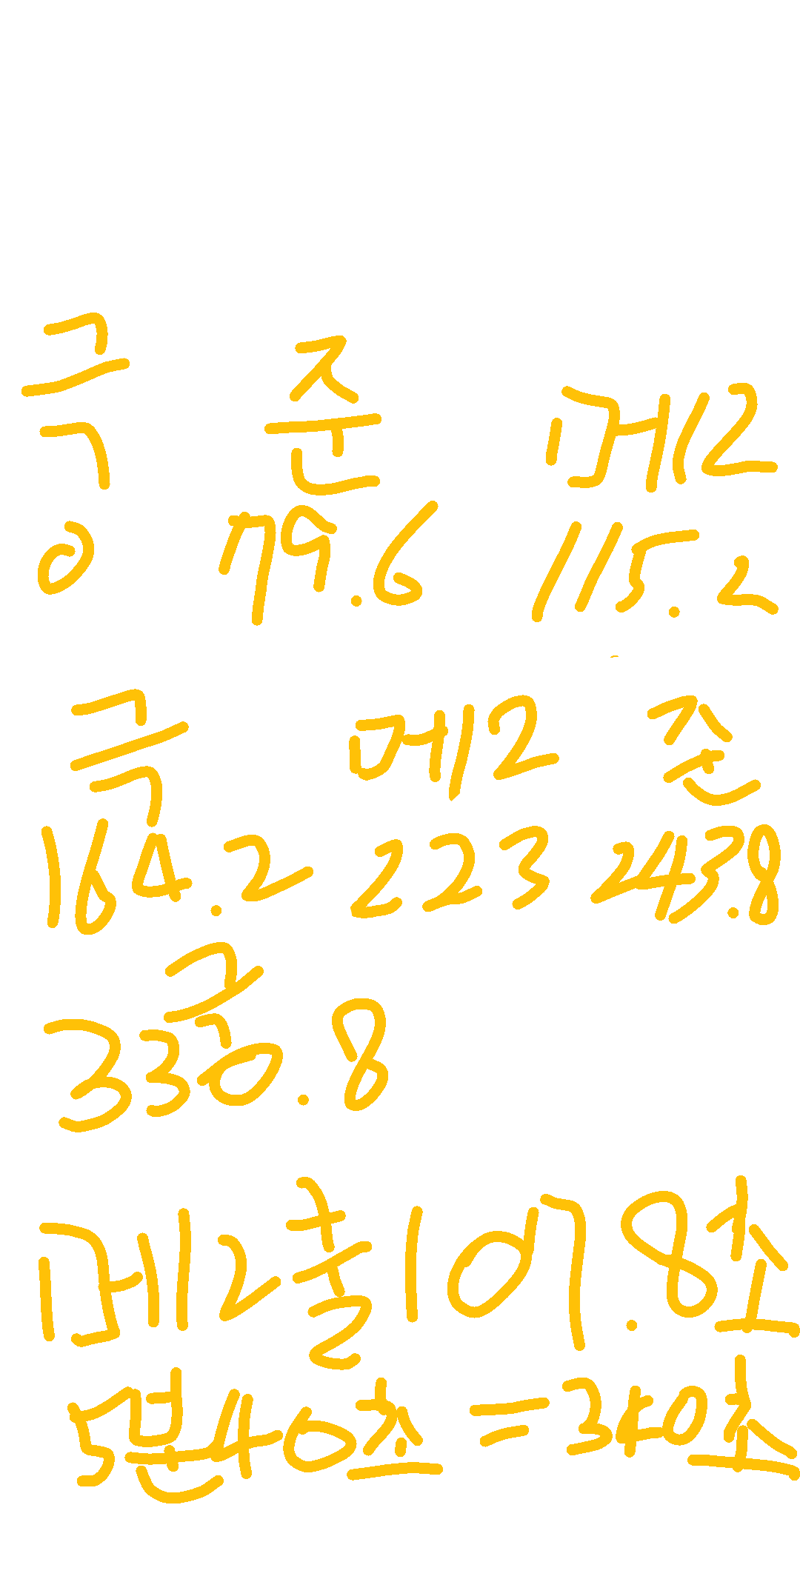 극 준 메12
0 79.6 115.2
극 메12 준
164.2 223 243.8
극
330.8
메12출 107.8초
5분40초 = 340초